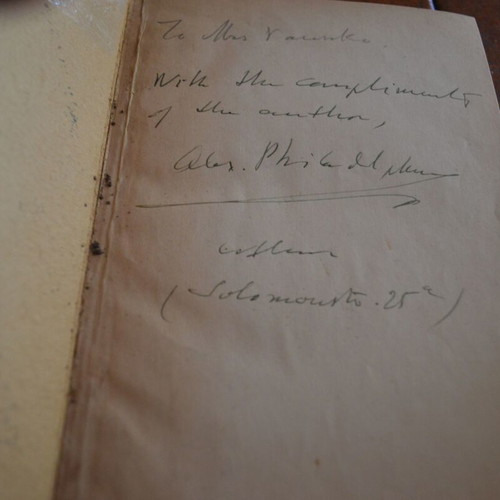 To Mrs
With the compliments
of the author,
Alex. Philadelpheus
(Solomonstr. 25a)